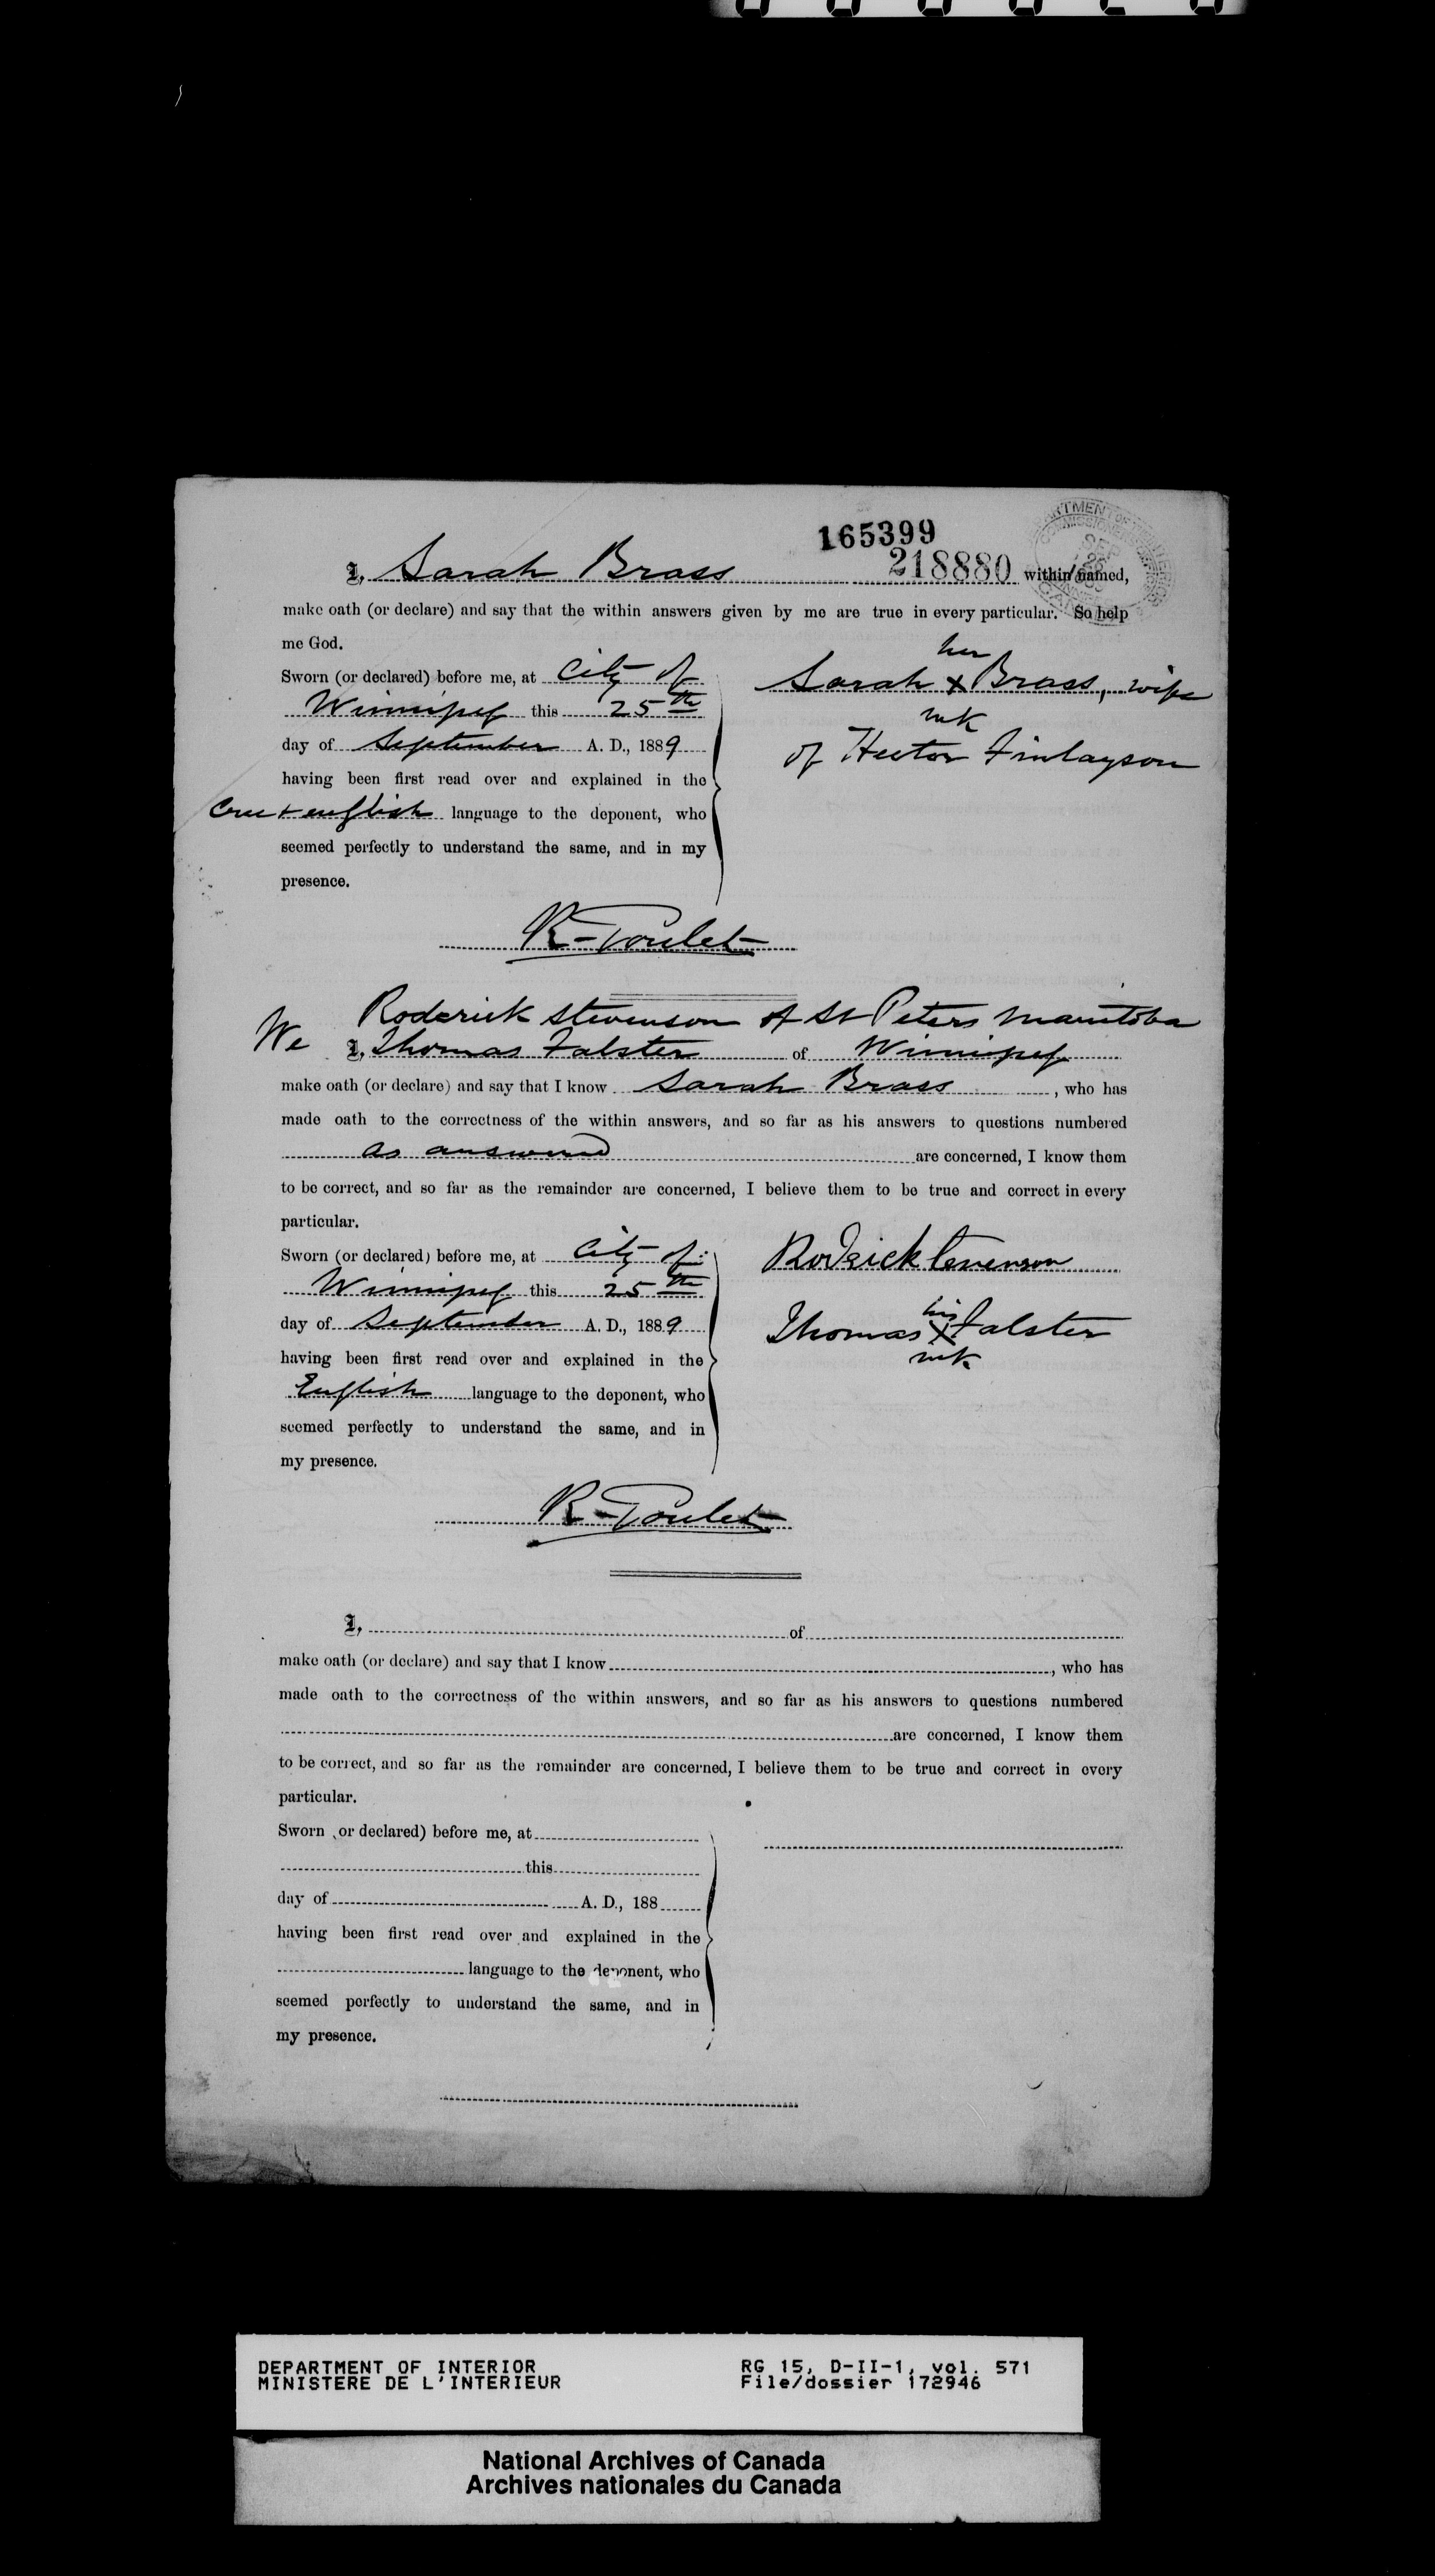 165399
218880
I, Sarah Brass within named,
make oath (or declare) and say that the within answers given by me are true in every particular. So help
me God.
Sworn (or declared) before me, at City of
Winnipeg this 25th
day of September A. D., 1889
having been first read over and explained in the
Cree + english language to the deponent, who
seemed perfectly to understand the same, and in my
presence.
her
Sarah x Brass, wife
mk
of Hector Finlayson
R. Goulet
Roderick Stevenson of St Peters Manitoba
We I, Thomas Falster of Winnipeg
make oath (or declare) and say that I know Sarah Brass, who has
made oath to the correctness of the within answers, and so far as his answers to questions numbered
as answered are concerned, I know them
to be correct, and so far as the remainder are concerned, I believe them to be true and correct in every
particular.
Sworn (or declared) before me, at City of
Winnipeg this 25th
day of September A. D., 1889
having been first read over and explained in the
English language to the deponent, who
seemed perfectly to understand the same, and in
my presence.
Rodrick Stevenson
his
Thomas X Falster
mk
R. Goulet
I, of
make oath (or declare) and say that I know, who has
made oath to the correctness of the within answers, and so far as his answers to questions numbered
are concerned, I know them
to be correct, and so far as the remainder are concerned, I believe them to be true and correct in every
particular.
Sworn or declared) before me, at
this
day of A. D., 188
having been first read over and explained in the
language to the deponent, who
seemed perfectly to understand the same, and in
my presence.
DEPARTMENT OF INTERIOR
MINISTERE DE L'INTERIEUR
RG 15, D-II-1, vol. 571
File/dossier 172946
National Archives of Canada
Archives nationales du Canada